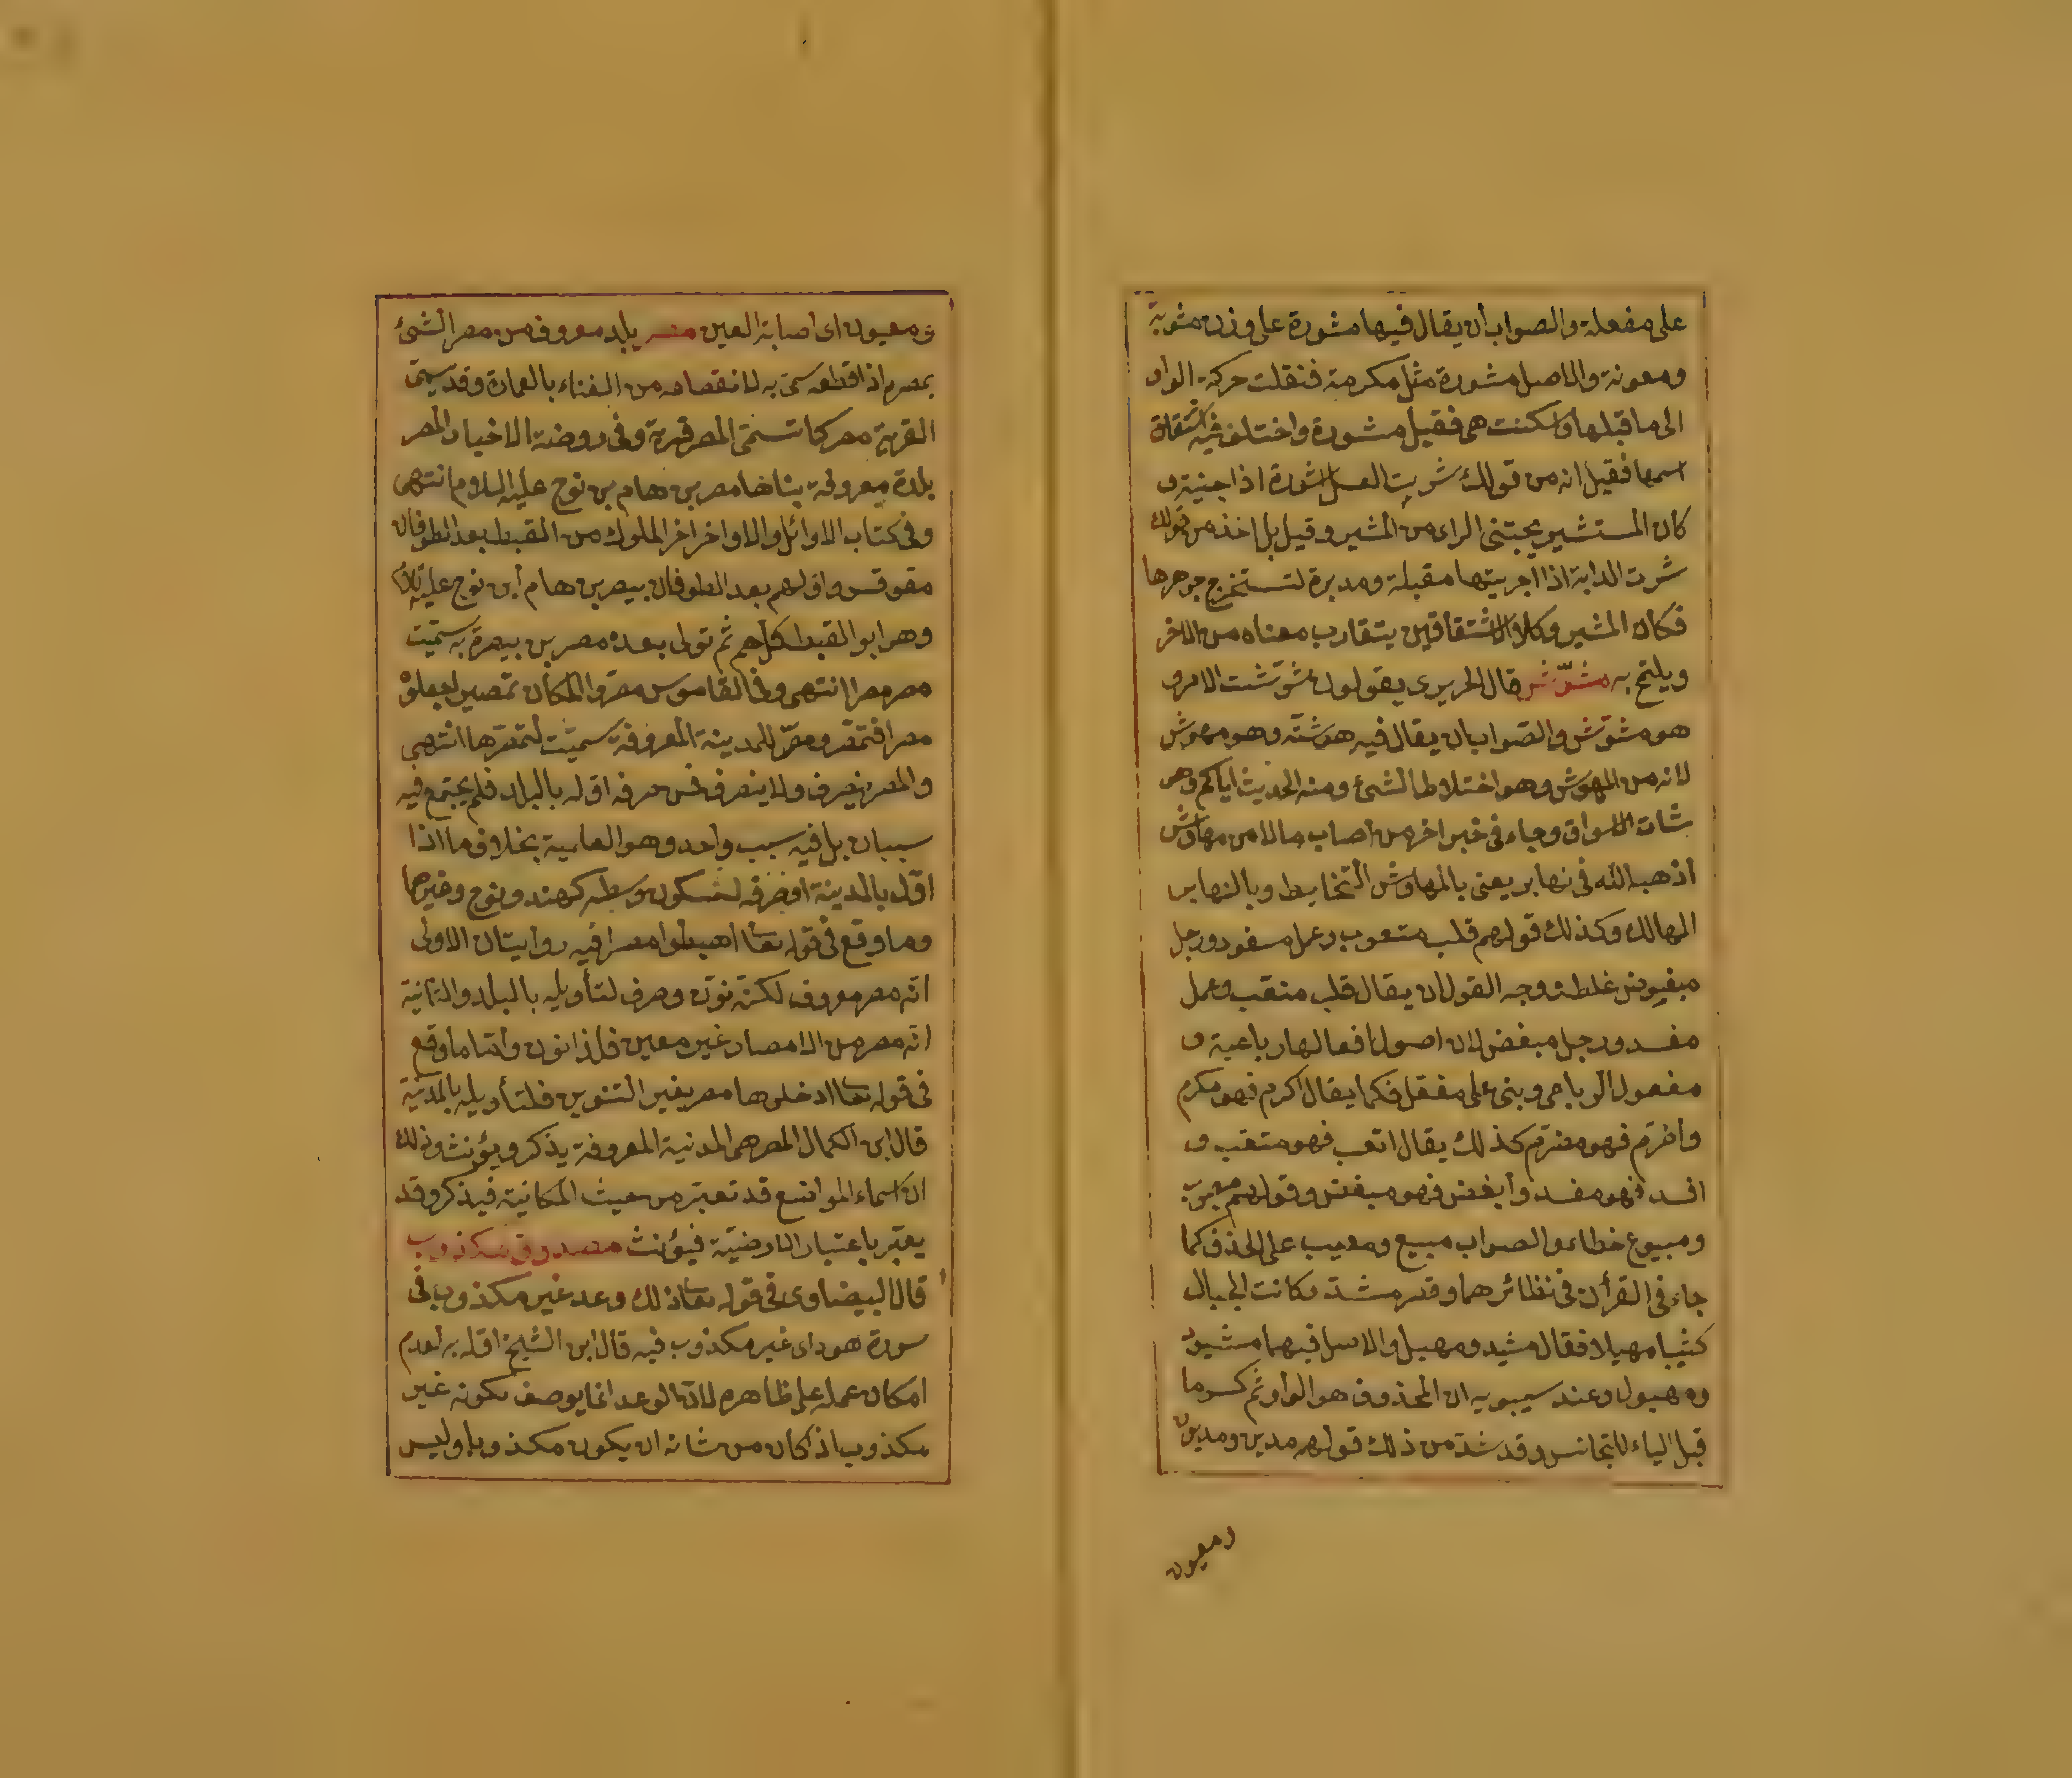 على مفعلة والصواب أن يقال فيها مشورة على وزن مثوبة
ومعونة والاصل مشورة مثل مكرمة فنقلت حركة الواو
الى ما قبلها وسكنت هى فقيل مشورة واختلف فى اشتقاق
اسمها فقيل انه من قولك شرت العسل اشورة اذا جنيته و
كان المستشير يجتنى الراى من المشير وقيل بل اخذ من قولك
شرت الدابة اذا اجريتها مقبلة ومدبرة لتستخرج جوهرها
فكان المشير وكلا الاشتقاقين يتقارب معناه من الاخر
ويلتح به مشوّش قال الحريرى يقولون شوّشت الامر و
هو مشوّش والصواب ان يقال فيه هوشته وهو مهوش
لانه من الهوش وهو اختلاط الشئ ومنه الحديث اياكم وهو
شات الاسواق وجاء فى خبر اخر من أصاب مالا من مهاوش
أذهبه الله فى نهابر يعنى بالمهاوش التخاليط وبالنهابر
المهالك وكذلك قولهم قلب متعوب وعمل مفسود ورجل
مبغوض غلط ووجه القول ان يقال قلب متعب وعمل
مفسد ورجل مبغض لان اصول افعالها رباعية و
مفعول الرباعى وبنى على مفعل فكما يقال اكرم فهو مكرم
وأضرم فهو مضرم كذلك يقال اتعب فهو متعب و
افسد فهو مفسد وأبغض فهو مبغض وقولهم معيوب
ومبيوع خطاء والصواب مبيع ومعيب على الحذف كما
جاء فى القرأن فى نظائرهما وقصر مشيد وكانت الجبال
كثيبا مهيلا فقال مشيد ومهيل والاصل فيهما مشيود
ومهيول وعند سيبويه ان المحذوف هو الواو ثم كسر ما
قبل الياء للتجانس وقد شذ من ذلك قولهم مدين ومديون
ومعيون
ومعيون اى اصابة العين مصر بلد معروف من مصر الشئ
بمصره اذا قطعه سمّى به لانقطاعه من الفناء بالعمارة وقد سمّى
القرية مصر كما تسمّى المصر قرية وفى روضة الاخيار المصر
بلدة معروفة بناها مصر بن هام بن نوح عليه السلام انتهى
وفى كتاب الاوائل والاواخر اخر الملوك من القبط بعد الطوفان
مقوقس واولهم بعد الطوفان بيصر بن هام أبن نوح عليه السلام
وهو ابو القبط كلهم ثم تولى بعده مصر بن بيصرة به سمّيت
مصر مصرا انتهى وفى القاموس مصّروا المكان تمصيرا جعلوه
مصرا فتمصّر ومصر للمدينة المعروفة سميت لتمصّرها انتهى
والمصر ينصرف ولا ينصرف فمن صرفه اوله بالبلد فلم يجتمع فيه
سببان بل فيه سبب واحد وهو العلمية بخلاف ما اذا
اوّل بالمدينة او صرفه لسكون وسطه كهند ونوح وغيرها
وما وقع فى قوله تعا اهبطوا مصرا فيه روايتان الاولى
انّه مصر معروف لكنّه نوّن وصرف لتأويله بالبلد والثانية
انّه مصر من الامصار غير معين فلذا نون وامّا ما وقع
فى قوله تعا ادخلوها مصر بغير التنوين فلتأويله بالمدينة
قال ابن الكمال المصر هى المدنية المعروفة يذكر ويؤنث وذلك
ان اسماء المواضع قد تعبّر من حيث المكانية فيذكر وقد
يعتبر باعتبار الارضيّة فيؤنث مصدوق مكذوب
قال البيضاوى فى قوله تعا ذلك وعد غير مكذوب فى
سورة هود اى غير مكذوب فيه قال ابن الشيخ اوله به لعدم
امكان حمله على ظاهره لانّ الوعد انما يوصف بكونه غير
مكذوب اذ كان من شانه ان يكون مكذوبا وليس